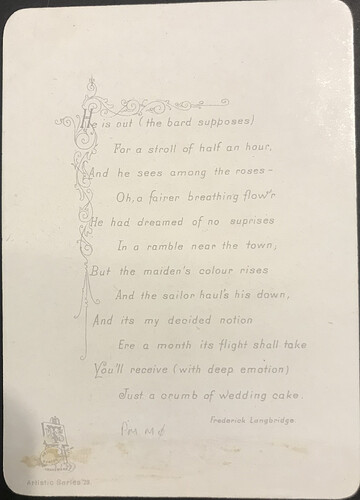 He is out (the bard supposes)
For a stroll of half an hour,
And he sees among the roses-
Oh, a fairer breathing flow'r
He had dreamed of no suprises
In a ramble near the town,
But the maiden's colour rises
And the sailor haul's his down,
And its my decided notion
Ere a month its flight shall take
You'll receive (with deep emotion)
Just a crumb of wedding cake.
Frederick Langbridge.
Artistic Series